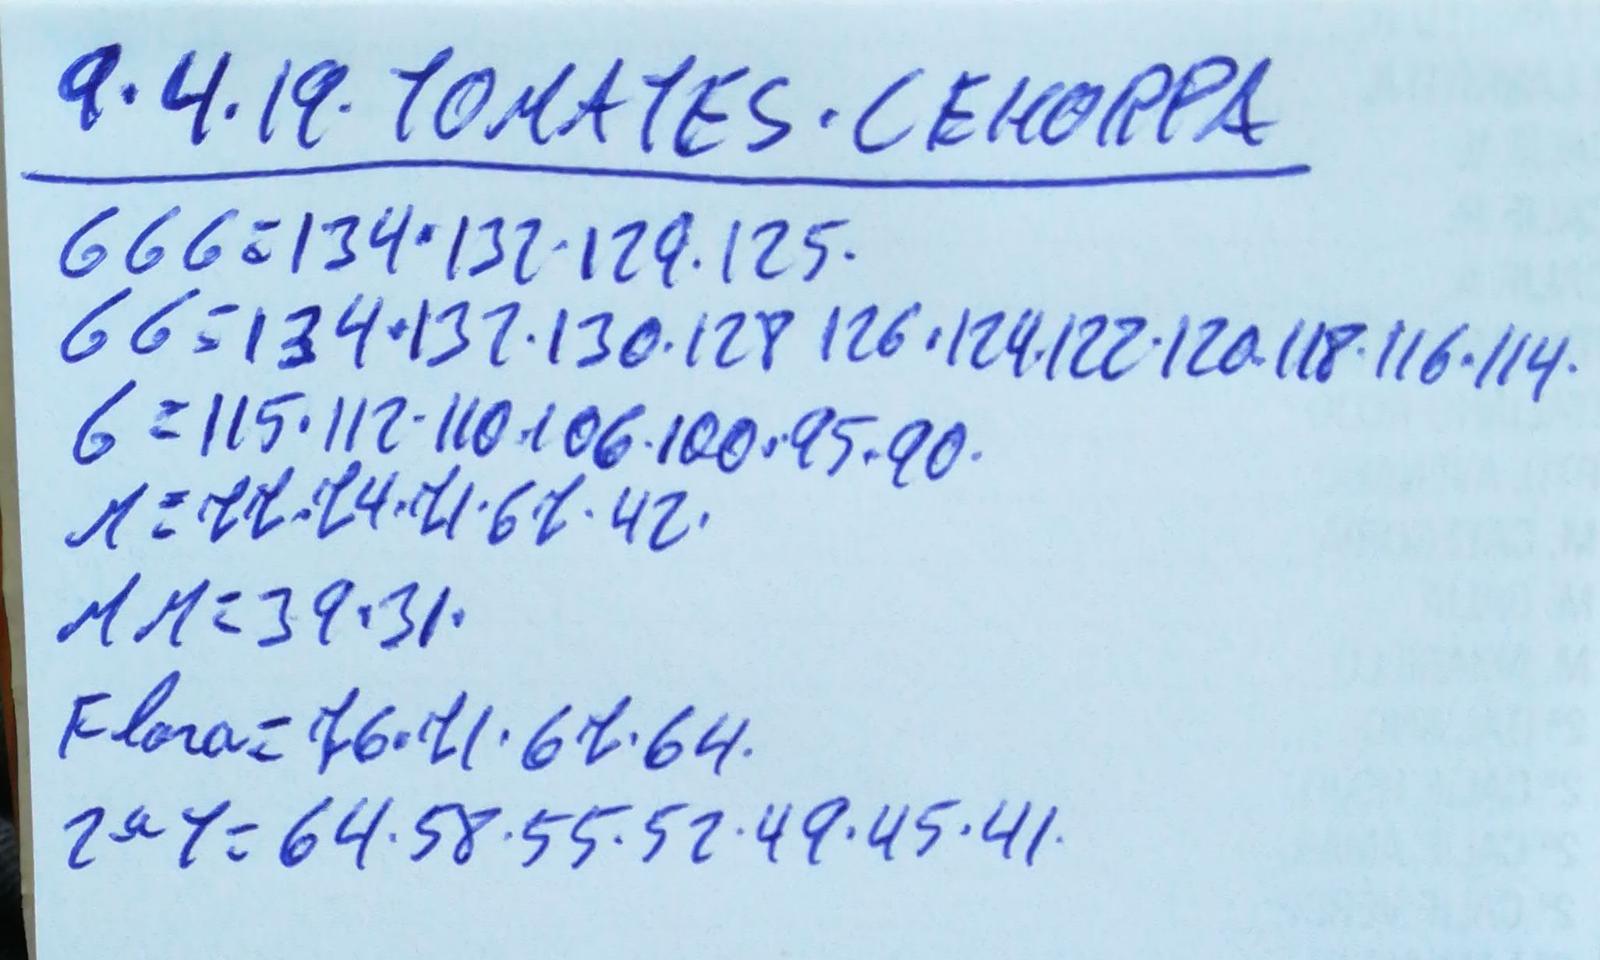 9.4.19. TOMATES. CEHORPA
GGG=134.132.129.125.
GG=134.132.130.128 126.124.122.120.118.116.114.
G=115.112.110.106.100.95.90.
M=77.74.71.67.42.
MM=39.31.
Flora=76.71.67.64.
2ª T=64.58.55.52.49.45.41.